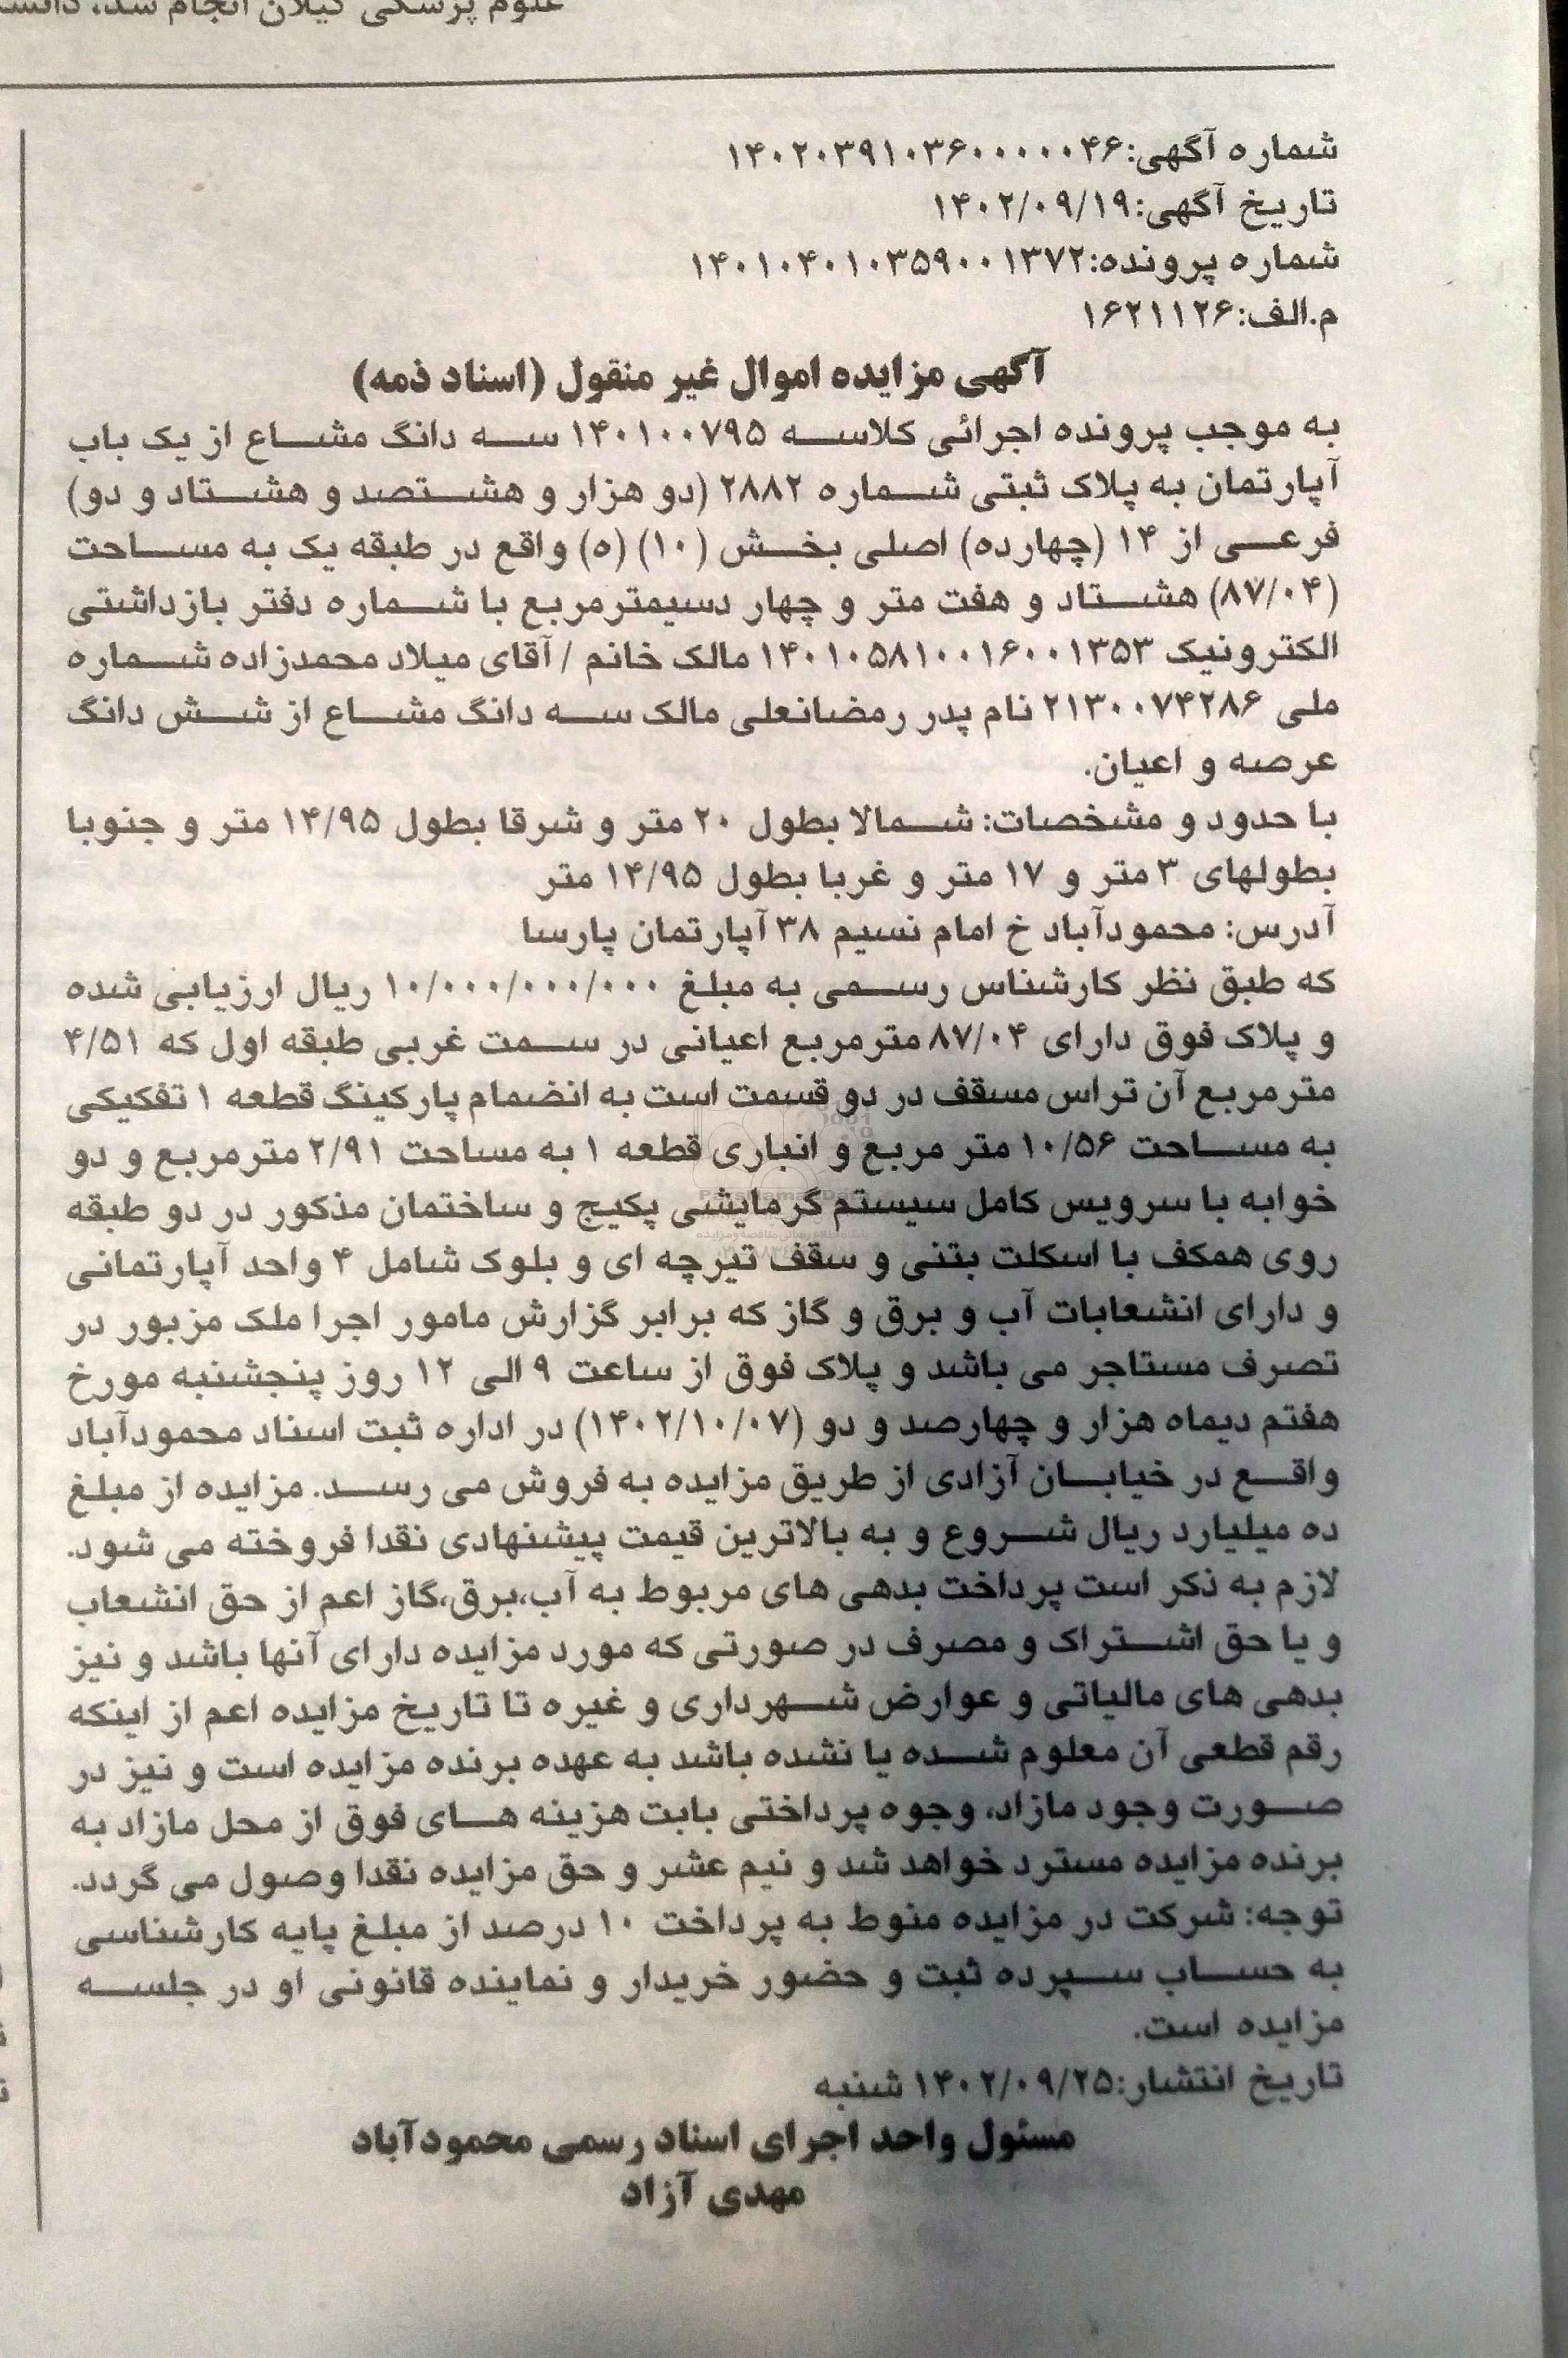 علوم پزشکی گیلان انجام شد،
شماره آگهی:۱۴۰۲۰۳۹۱۰۳۶۰۰۰۰۰۴۶
تاریخ آگهی:۱۴۰۲/۰۹/۱۹
شماره پرونده:۱۴۰۱۰۴۰۱۰۳۵۹۰۰۱۳۷۲
م.الف:۱۶۲۱۱۲۶
آگهی مزایده اموال غیر منقول (اسناد ذمه)
به موجب پرونده اجرائی کلاسه ۱۴۰۱۰۰۷۹۵ سه دانگ مشاع از یک باب
آپارتمان به پلاک ثبتی شماره ۲۸۸۲ (دو هزار و هشتصد و هشتاد و دو)
فرعی از ۱۴ (چهارده) اصلی بخش (۱۰) (ه) واقع در طبقه یک به مساحت
(۸۷/۰۴) هشتاد و هفت متر و چهار دسیمترمربع با شماره دفتر بازداشتی
الکترونیک ۱۴۰۱۰۵۸۱۰۰۱۶۰۰۱۳۵۳ مالک خانم / آقای میلاد محمدزاده شماره
ملی ۲۱۳۰۰۷۴۲۸۶ نام پدر رمضانعلی مالک سه دانگ مشاع از شش دانگ
عرصه و اعیان.
با حدود و مشخصات: شمالا بطول ۲۰ متر و شرقا بطول ۱۴/۹۵ متر و جنوبا
بطولهای ۳ متر و ۱۷ متر و غربا بطول ۱۴/۹۵ متر
آدرس: محمودآباد خ امام نسیم ۳۸ آپارتمان پارسا
که طبق نظر کارشناس رسمی به مبلغ ۱۰/۰۰۰/۰۰۰/۰۰۰ ریال ارزیابی شده
و پلاک فوق دارای ۸۷/۰۴ مترمربع اعیانی در سمت غربی طبقه اول که ۴/۵۱
مترمربع آن تراس مسقف در دو قسمت است به انضمام پارکینگ قطعه ۱ تفکیکی
به مساحت ۱۰/۵۶ متر مربع و انباری قطعه ۱ به مساحت ۲/۹۱ مترمربع و دو
خوابه با سرویس کامل سیستم گرمایشی پکیج و ساختمان مذکور در دو طبقه
روی همکف با اسکلت بتنی و سقف تیرچه ای و بلوک شامل ۴ واحد آپارتمانی
و دارای انشعابات آب و برق و گاز که برابر گزارش مامور اجرا ملک مزبور در
تصرف مستاجر می باشد و پلاک فوق از ساعت ۹ الی ۱۲ روز پنجشنبه مورخ
هفتم دیماه هزار و چهارصد و دو (۱۴۰۲/۱۰/۰۷) در اداره ثبت اسناد محمودآباد
واقع در خیابان آزادی از طریق مزایده به فروش می رسد. مزایده از مبلغ
ده میلیارد ریال شروع و به بالاترین قیمت پیشنهادی نقدا فروخته می شود.
لازم به ذکر است پرداخت بدهی های مربوط به آب،برق،گاز اعم از حق انشعاب
و یا حق اشتراک و مصرف در صورتی که مورد مزایده دارای آنها باشد و نیز
بدهی های مالیاتی و عوارض شهرداری و غیره تا تاریخ مزایده اعم از اینکه
رقم قطعی آن معلوم شده یا نشده باشد به عهده برنده مزایده است و نیز در
صورت وجود مازاد، وجوه پرداختی بابت هزینه های فوق از محل مازاد به
برنده مزایده مسترد خواهد شد و نیم عشر و حق مزایده نقدا وصول می گردد.
توجه: شرکت در مزایده منوط به پرداخت ۱۰ درصد از مبلغ پایه کارشناسی
به حساب سپرده ثبت و حضور خریدار و نماینده قانونی او در جلسه
مزایده است.
تاریخ انتشار:۱۴۰۲/۰۹/۲۵ شنبه
مسئول واحد اجرای اسناد رسمی محمودآباد
مهدی آزاد